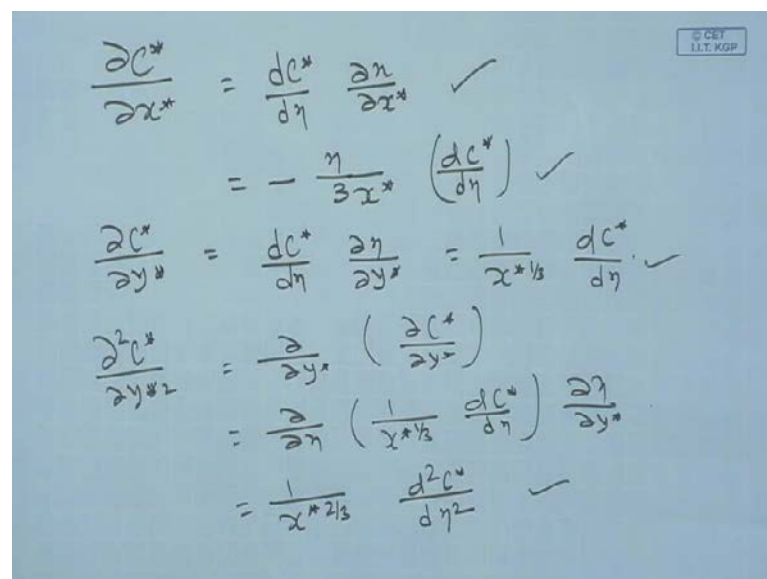 © CET
I.I.T. KGP
∂C*/∂x* = dC*/dη ∂η/∂x* ✓
= - η/3x* (dC*/dη) ✓
∂C*/∂y* = dC*/dη ∂η/∂y* = 1/x*^1/3 dC*/dη . ✓
∂²C*/∂y*² = ∂/∂y* (∂C*/∂y*)
= ∂/∂η (1/x*^1/3 dC*/dη) ∂η/∂y*
= 1/x*^2/3 d²C*/dη² ✓